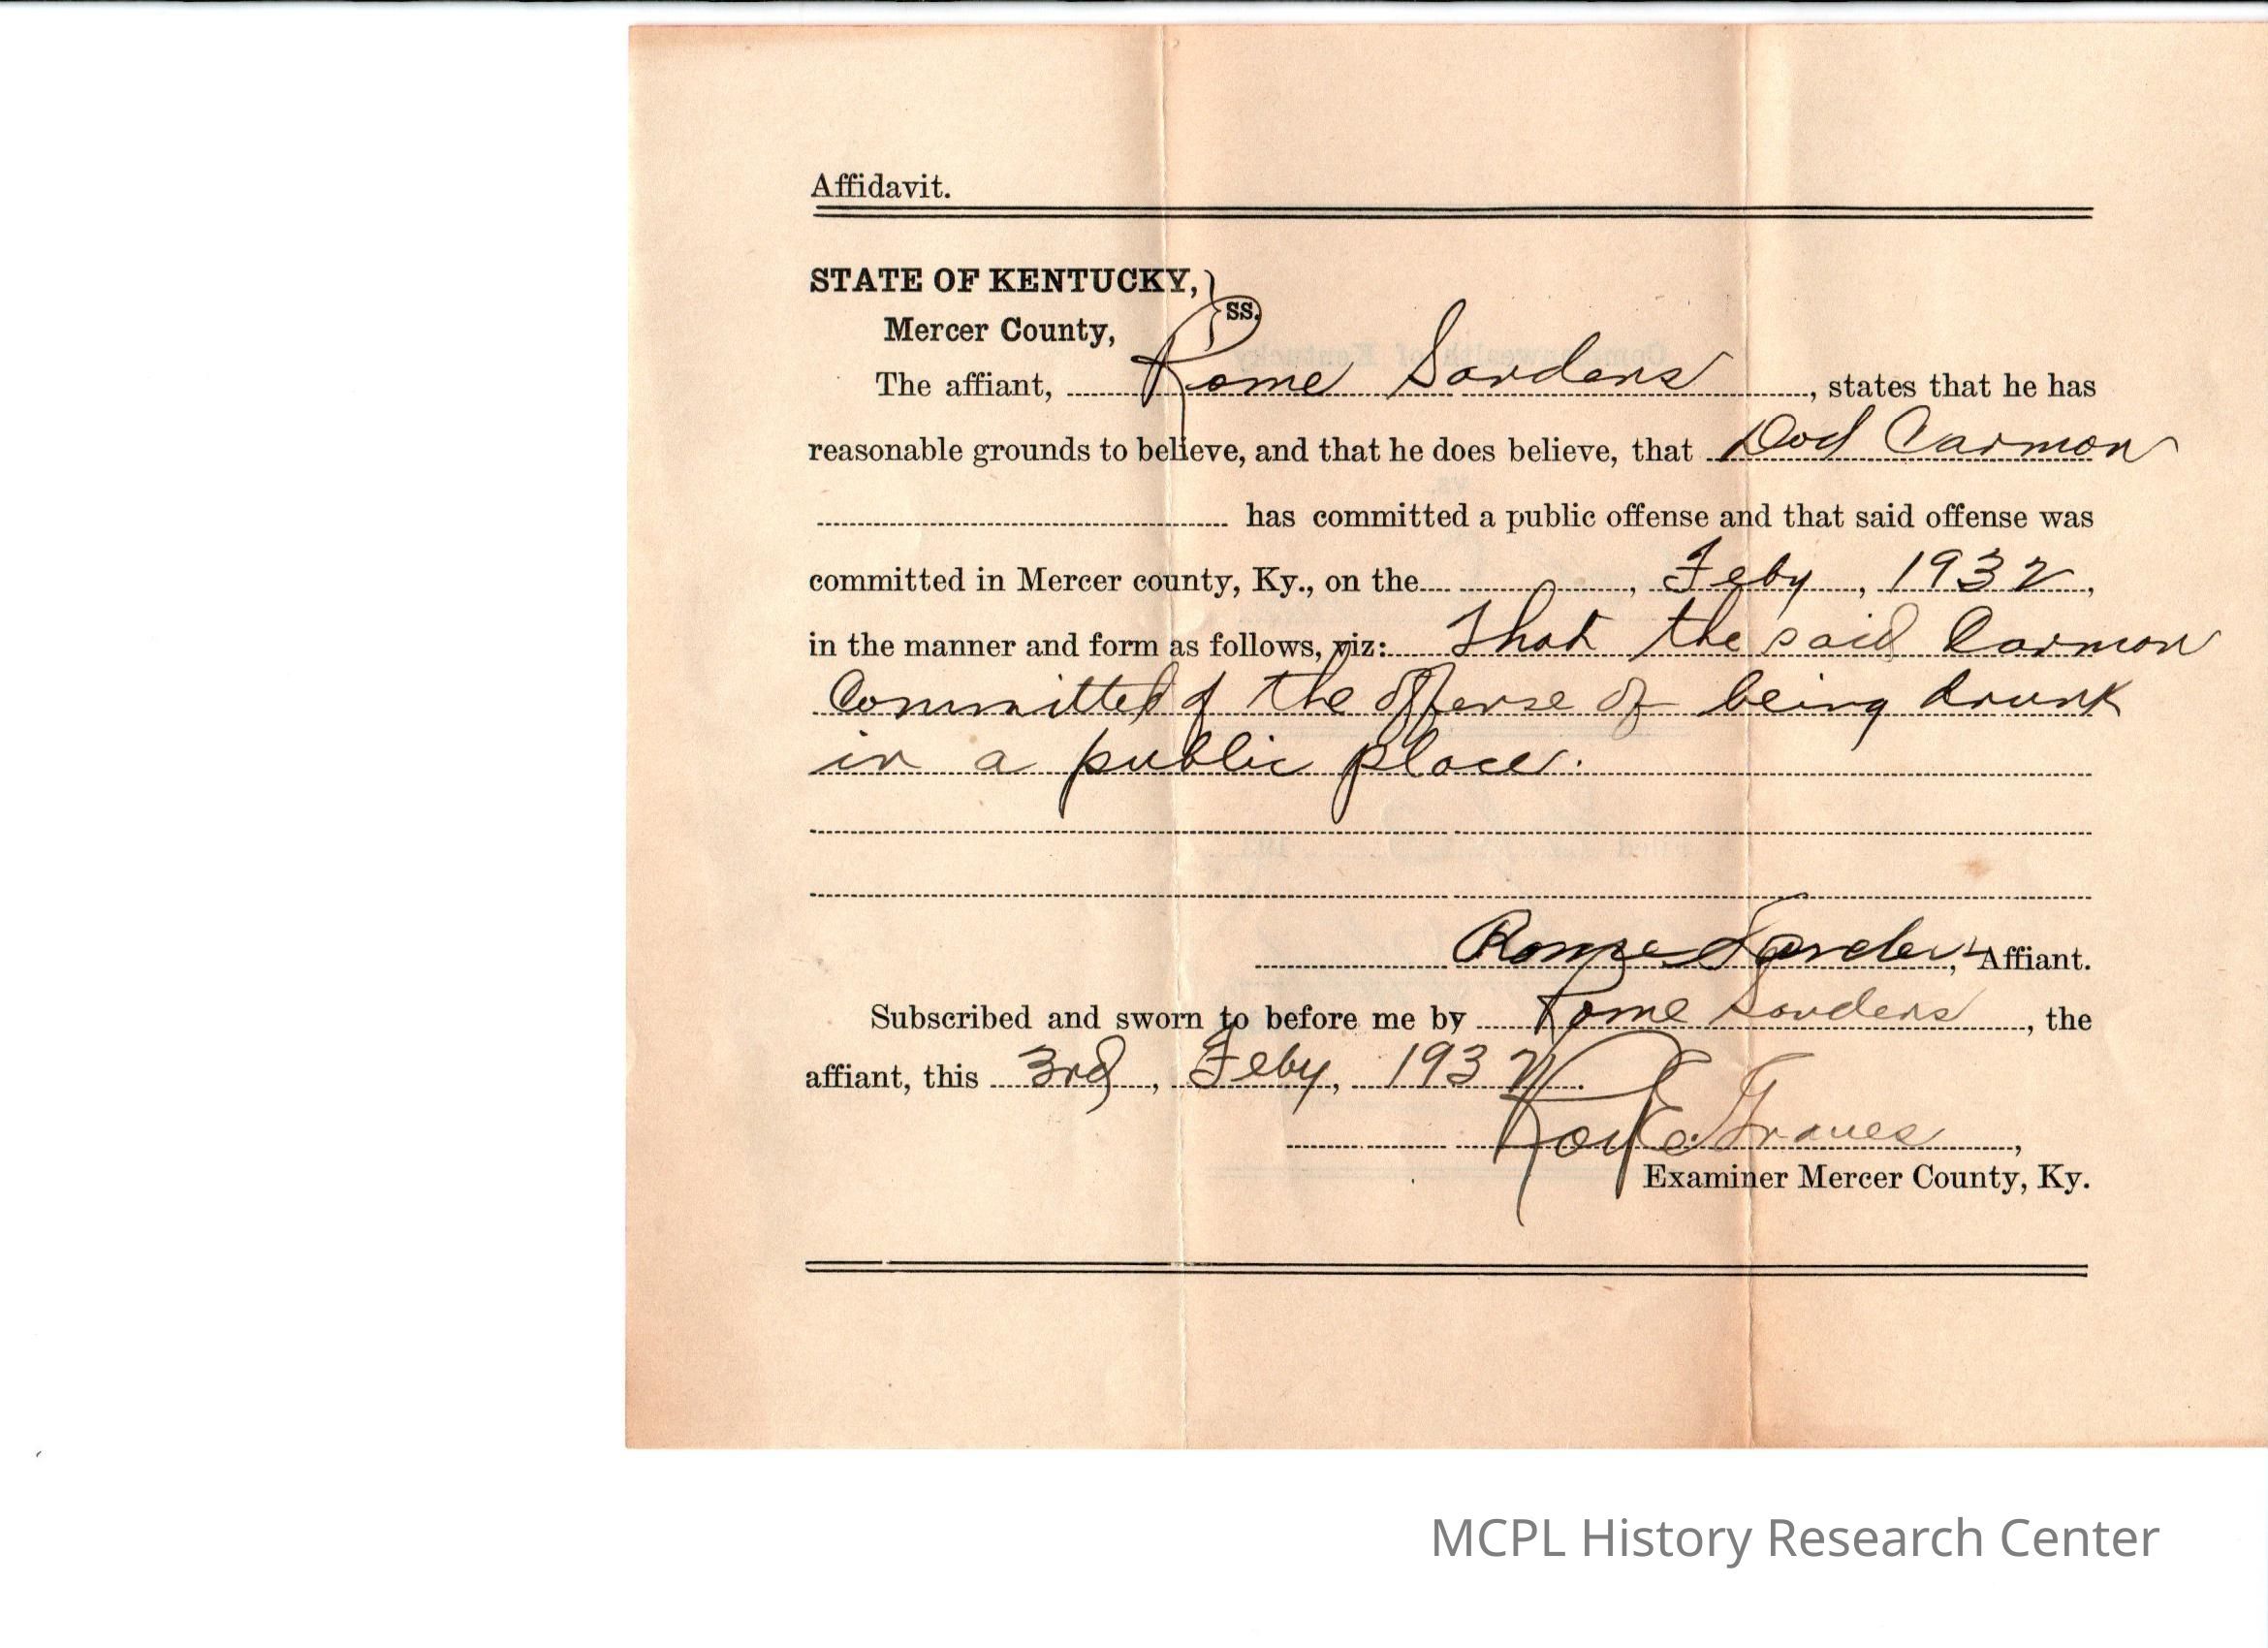 Affidavit.
STATE OF KENTUCKY, } ss.
Mercer County,
The affiant, Rome Sanders, states that he has
reasonable grounds to believe, and that he does believe, that Dod Carmon
has committed a public offense and that said offense was
committed in Mercer county, Ky., on the , Feby, 1932,
in the manner and form as follows, viz: That the said Carmon
Committed of the offense of being drunk
in a public place.
Rome Sanders, Affiant.
Subscribed and sworn to before me by Rome Sanders, the
affiant, this 3rd, Feby, 1932.
Roy E. Graves,
Examiner Mercer County, Ky.
MCPL History Research Center